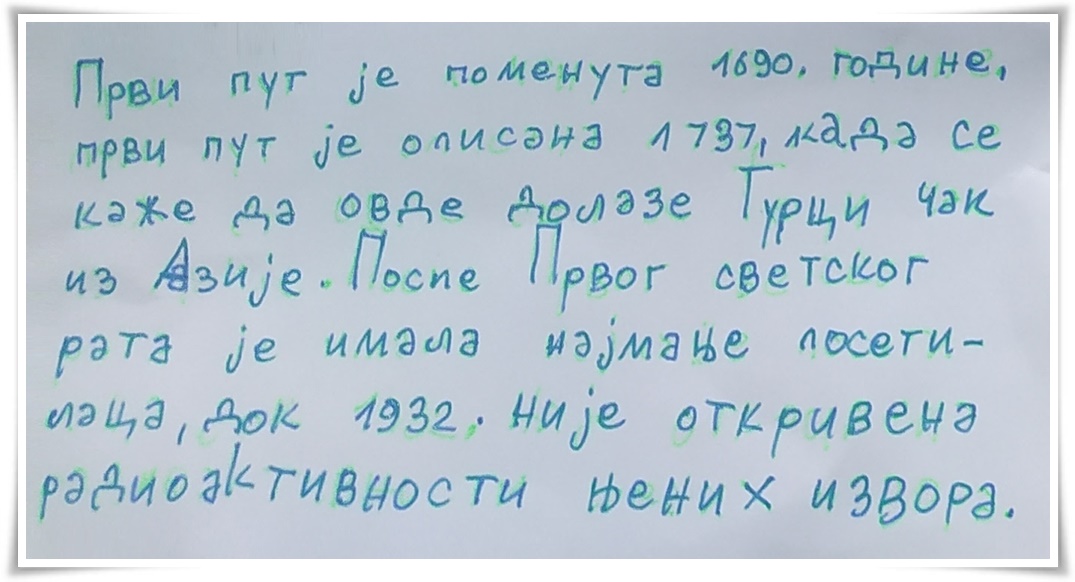 Први пут је поменута 1690. године,
први пут је описана 1737, када се
каже да овде долазе Турци чак
из Азије. После Првог светског
рата је имала најмање посети-
лаца, док 1932. није откривена
радиоактивности њених извора.